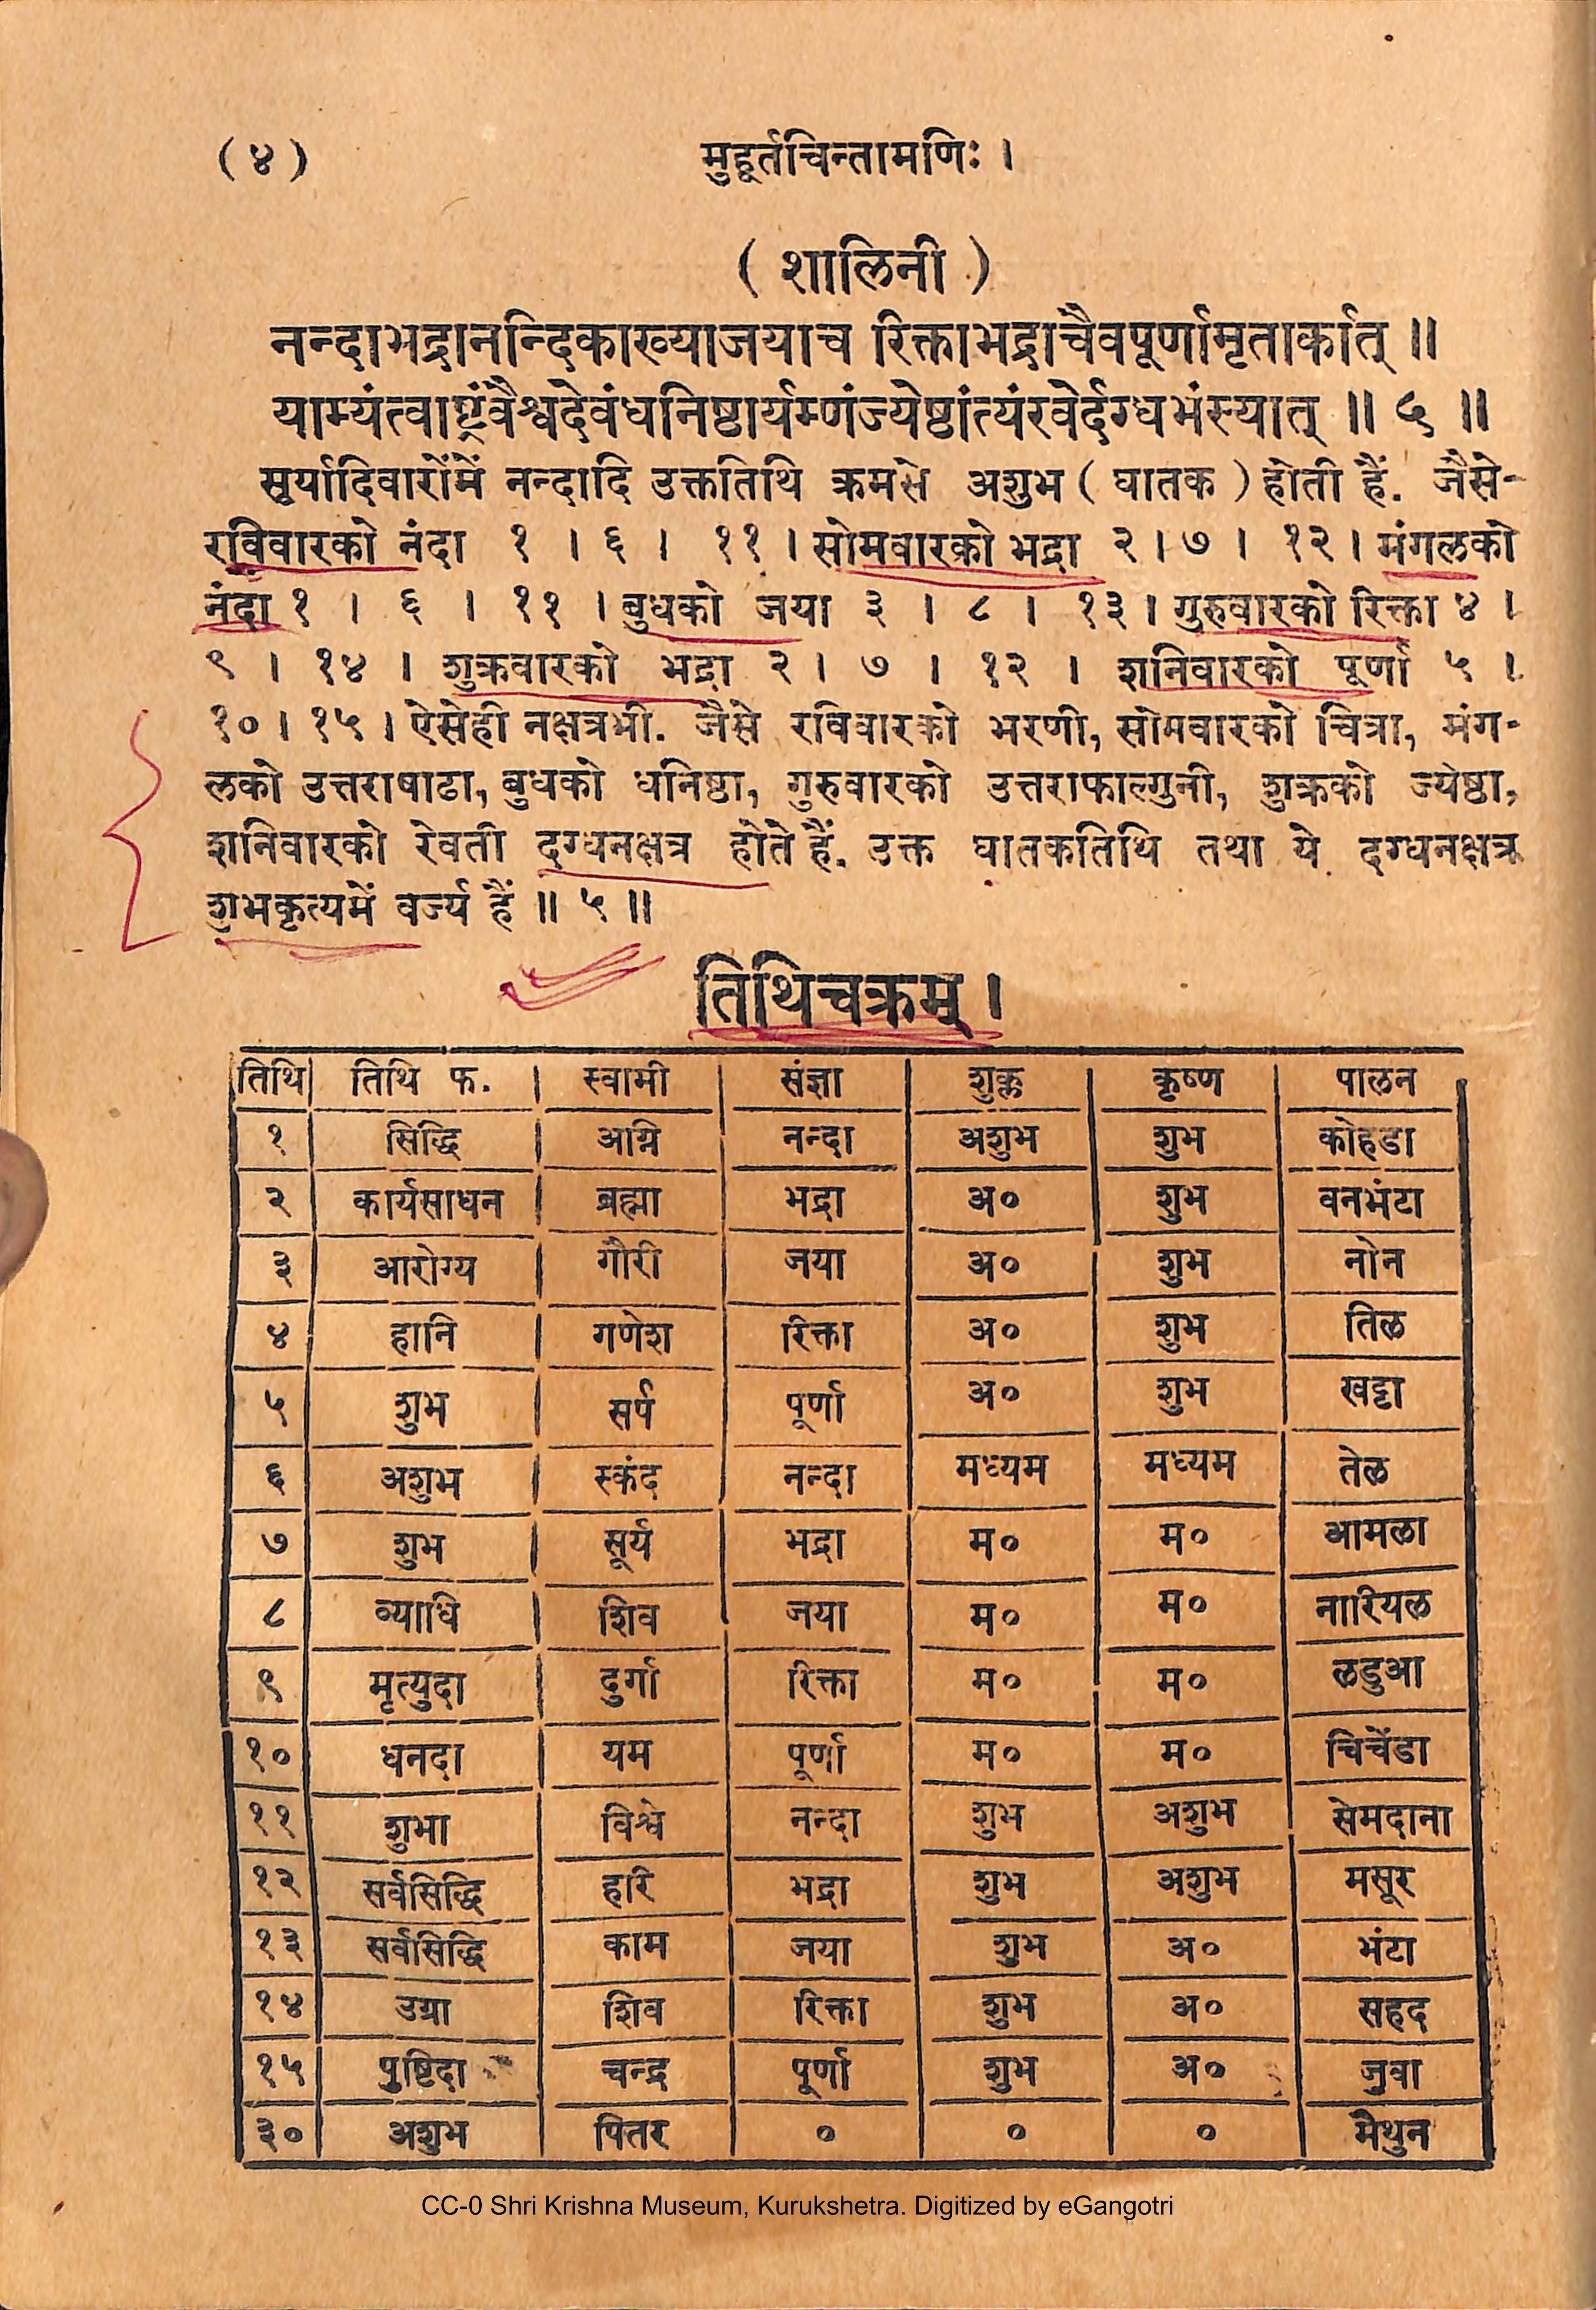 (४) मुहूर्तचिन्तामणिः ।
( शालिनी )
नन्दाभद्रानन्दिकाख्याजयाच रिक्ताभद्राचैवपूर्णामृतार्कात् ॥
याम्यंत्वाष्ट्रंवैश्वदेवंधनिष्ठार्यम्णंज्येष्ठांत्यंरवेर्दग्धभंस्यात् ॥ ५ ॥
सूर्यादिवारोंमें नन्दादि उक्ततिथि क्रमसे अशुभ ( घातक ) होती हैं. जैसे-
रविवारको नंदा १ । ६ । ११ । सोमवारको भद्रा २ । ७ । १२ । मंगलको
नंदा १ । ६ । ११ । बुधको जया ३ । ८ । १३ । गुरुवारको रिक्ता ४ ।
९ । १४ । शुक्रवारको भद्रा २ । ७ । १२ । शनिवारको पूर्णा ५ ।
१० । १५ । ऐसेही नक्षत्रभी. जैसे रविवारको भरणी, सोमवारको चित्रा, मंग-
लको उत्तराषाढा, बुधको धनिष्ठा, गुरुवारको उत्तराफाल्गुनी, शुक्रको ज्येष्ठा,
शनिवारको रेवती दग्धनक्षत्र होते हैं. उक्त घातकतिथि तथा ये दग्धनक्षत्र
शुभकृत्यमें वर्ज्य हैं ॥ ५ ॥
तिथिचक्रम् ।
तिथि तिथि फ. स्वामी संज्ञा शुक्ल कृष्ण पालन
१ सिद्धि अग्नि नन्दा अशुभ शुभ कोहडा
२ कार्यसाधन ब्रह्मा भद्रा अ० शुभ वनभंटा
३ आरोग्य गौरी जया अ० शुभ नोन
४ हानि गणेश रिक्ता अ० शुभ तिल
५ शुभ सर्प पूर्णा अ० शुभ खट्टा
६ अशुभ स्कंद नन्दा मध्यम मध्यम तेल
७ शुभ सूर्य भद्रा म० म० आमला
८ व्याधि शिव जया म० म० नारियल
९ मृत्युदा दुर्गा रिक्ता म० म० लडुआ
१० धनदा यम पूर्णा म० म० चिचेंडा
११ शुभा विश्वे नन्दा शुभ अशुभ सेमदाना
१२ सर्वसिद्धि हरि भद्रा शुभ अशुभ मसूर
१३ सर्वसिद्धि काम जया शुभ अ० भंटा
१४ उग्रा शिव रिक्ता शुभ अ० सहद
१५ पुष्टिदा चन्द्र पूर्णा शुभ अ० जुवा
३० अशुभ पितर ० ० ० मैथुन
CC-0 Shri Krishna Museum, Kurukshetra. Digitized by eGangotri